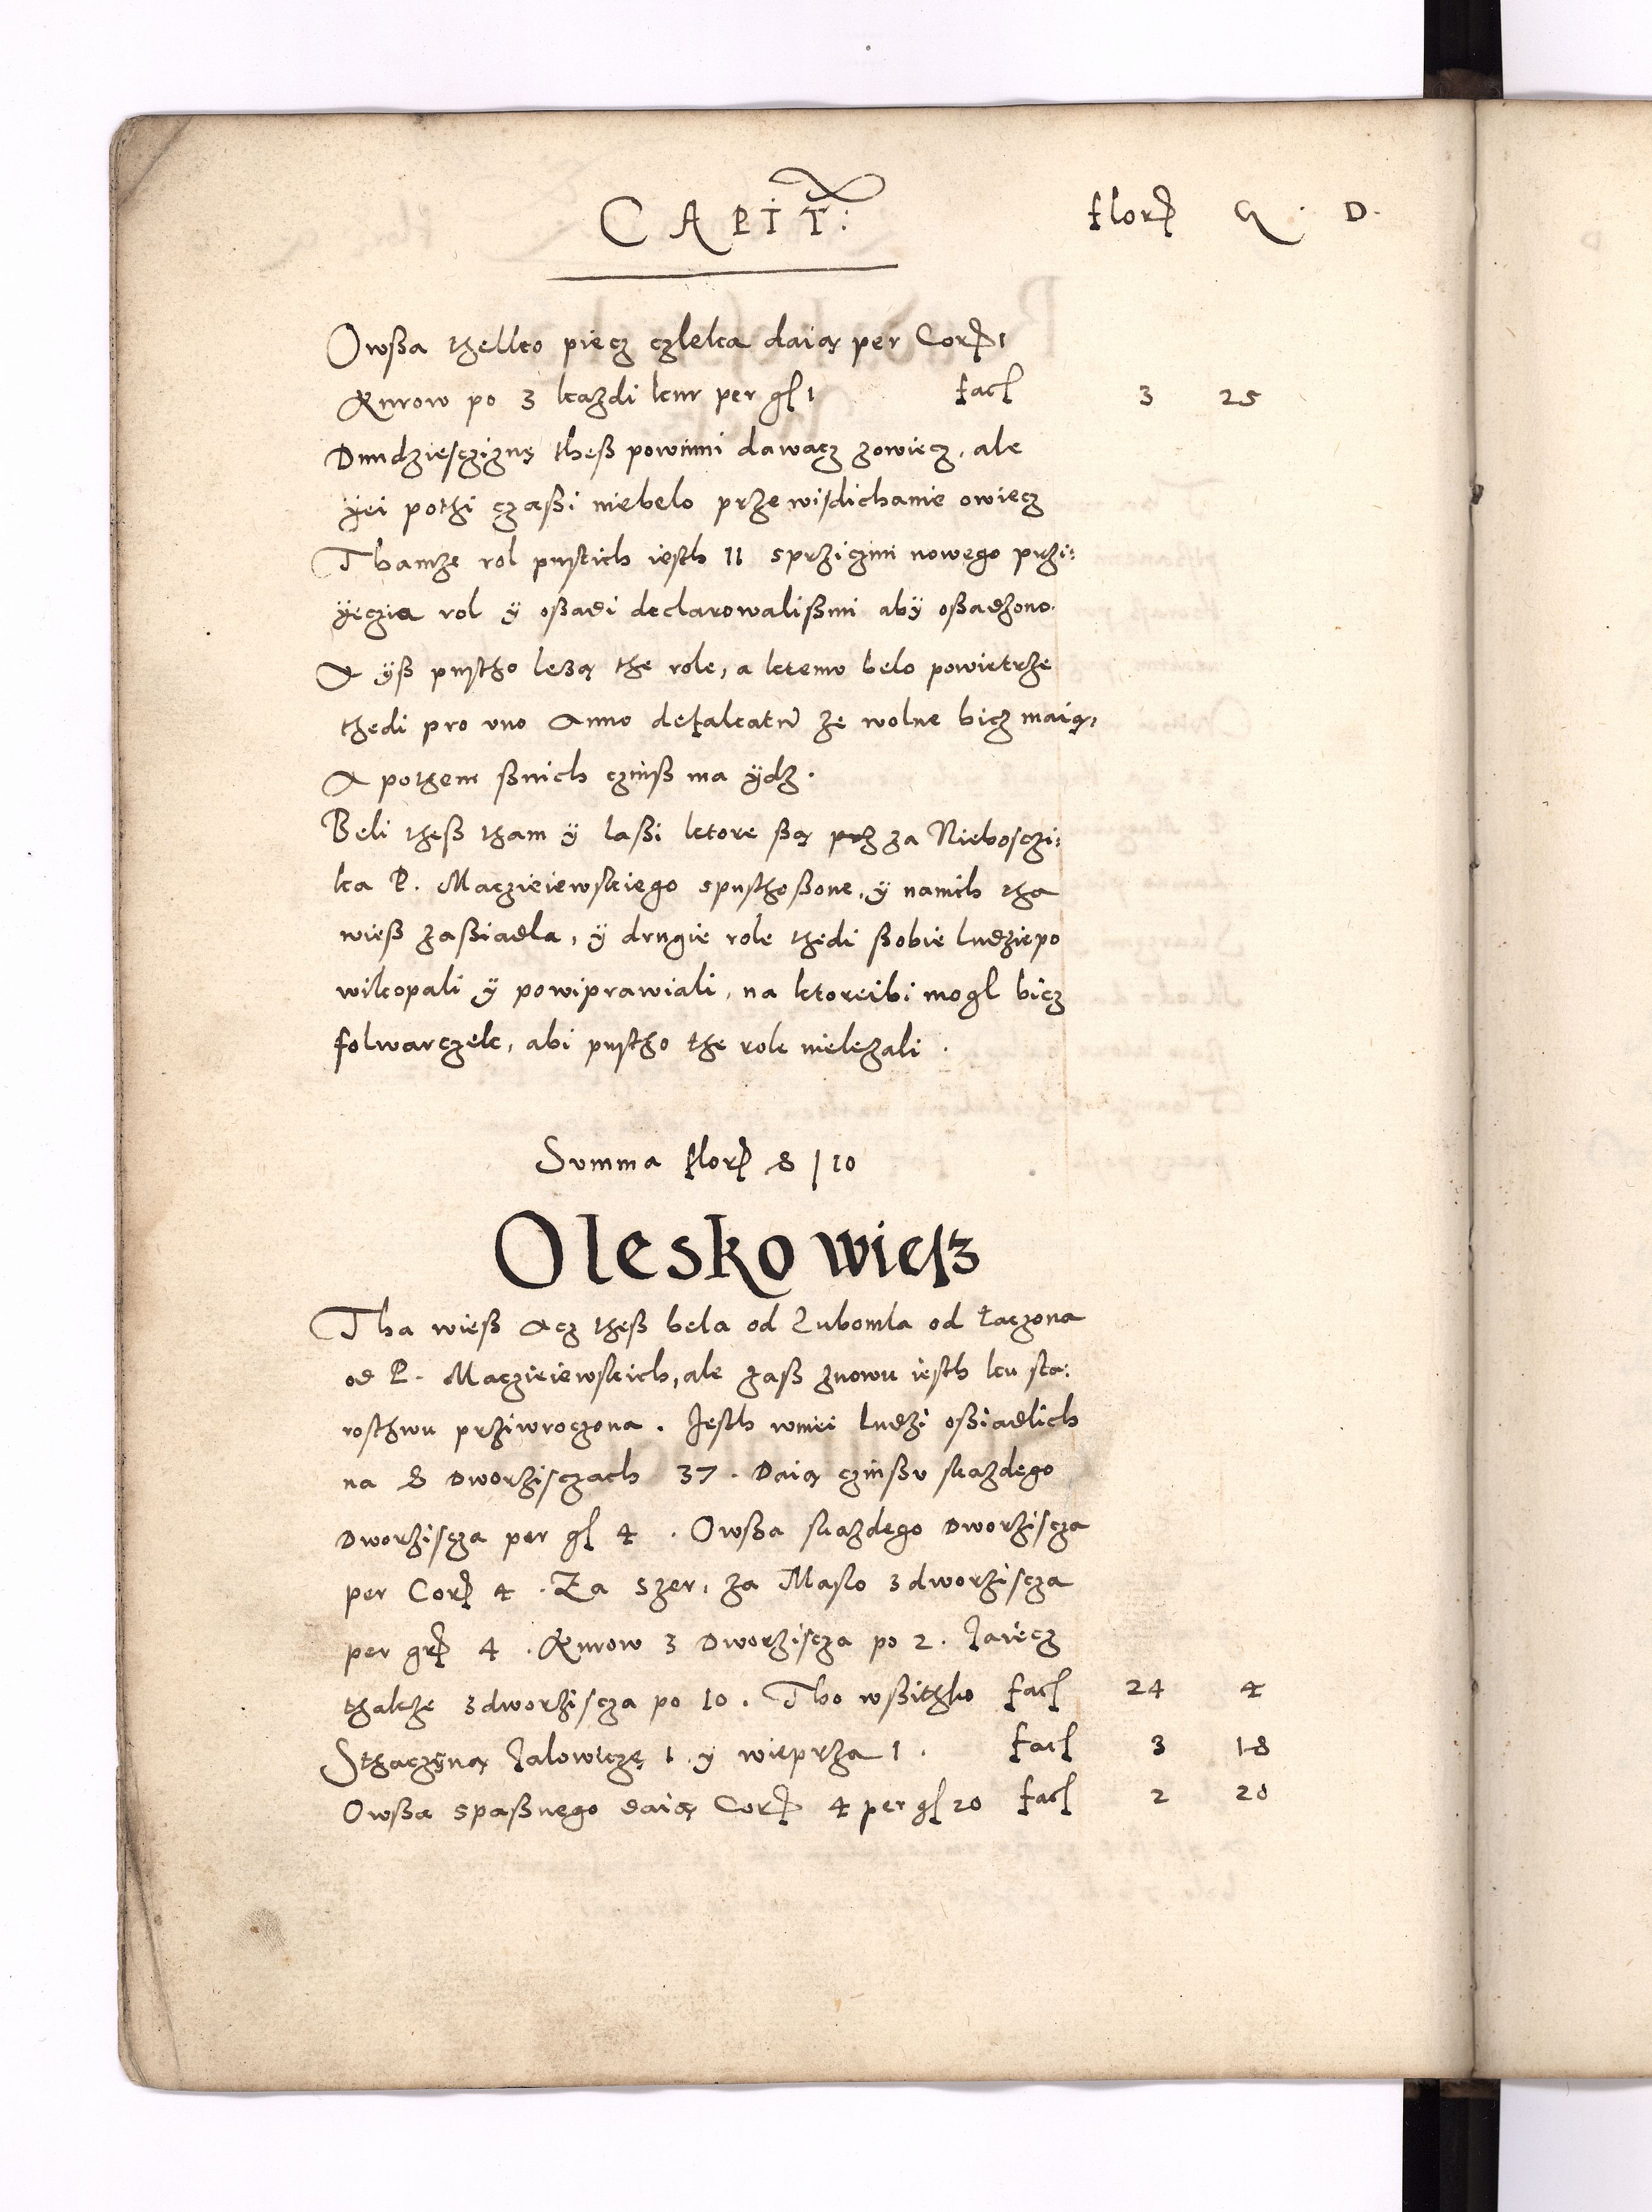 CAPIT: flor G. D.
Owßa thelko pięcz człeka daią per Cor 1
Kurow po 3 każdi kur per gſ 1 fac 3 25
Dnudziesczizną theß powinni dawacz zowiecz, ale
yei pothi czaßi niebelo prze wisdichanie owiecz
Thamże rol pustich iesth 11 sprziczini nowego przi:
yęczia rol y oßadi declarowalißmi aby oßadzono.
A yß pustho lezą the role, a ktemo belo powietrze
thedi pro uno Anno defalcatur że wolne bicz maią,
A pothem ßnich czinß ma ydz.
Beli theß tham y laßi ktore ßą za Nieboſczi:
ka P. Maczieiewskiego spusthoßone, y namih tha
wieß zaßiadla, y drugie role thedi ßobie ludzie po
wikopali y powiprawiali, na ktoreibi mogl bicz
folwarczek, abi pustho the role nielezali.
Summa flor 8 | 10
Olesko wieſz
Tha wieß Acz theß bela od Lubomla od łaczona
od P. Maczieiewskich, ale zaß znowu iesth ku sta:
rosthwu prziwroczona. Jesth wniei ludzi oßiadlich
na 8 dworziſczach 37. Daią czinßu skażdego
dworziſcza per gſ 4. Owßa skażdego dworziſcza
per Cor 4. Za szer, za Maslo zdworziſcza
per gr 4. Kurow z dworziſcza po 2. Jaiecz
thakże zdworziſcza po 10. Tho wßithko fac 24 4
Sthaczyną Jalowiczę 1. y wieprza 1. fac 3 18
Owßa spaßnego daią Cor 4 per gſ 20 fac 2 20